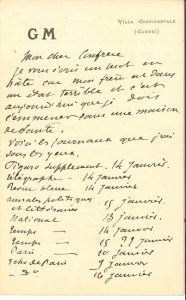 VILLA CONTINENTALE
(CANNES)
GM
Mon cher Confrère
je vous écris un mot en
hâte car mon frère est dans
un état terrible et c'est
aujourd'hui que je dois
l'emmener dans une maison
de santé.
Voici les journaux que j'ai
sous les yeux.
Figaro supplément. 14 janvier.
Télégraphe - 14 janvier
Revue bleue 14 janvier
Annales politiques
et littéraires 15 janvier.
National 13 janvier.
Temps - 14 janvier
Temps - 15 ?? janvier
Paris 10 janvier
Echo de Paris 9 janvier
- do 16 janvier